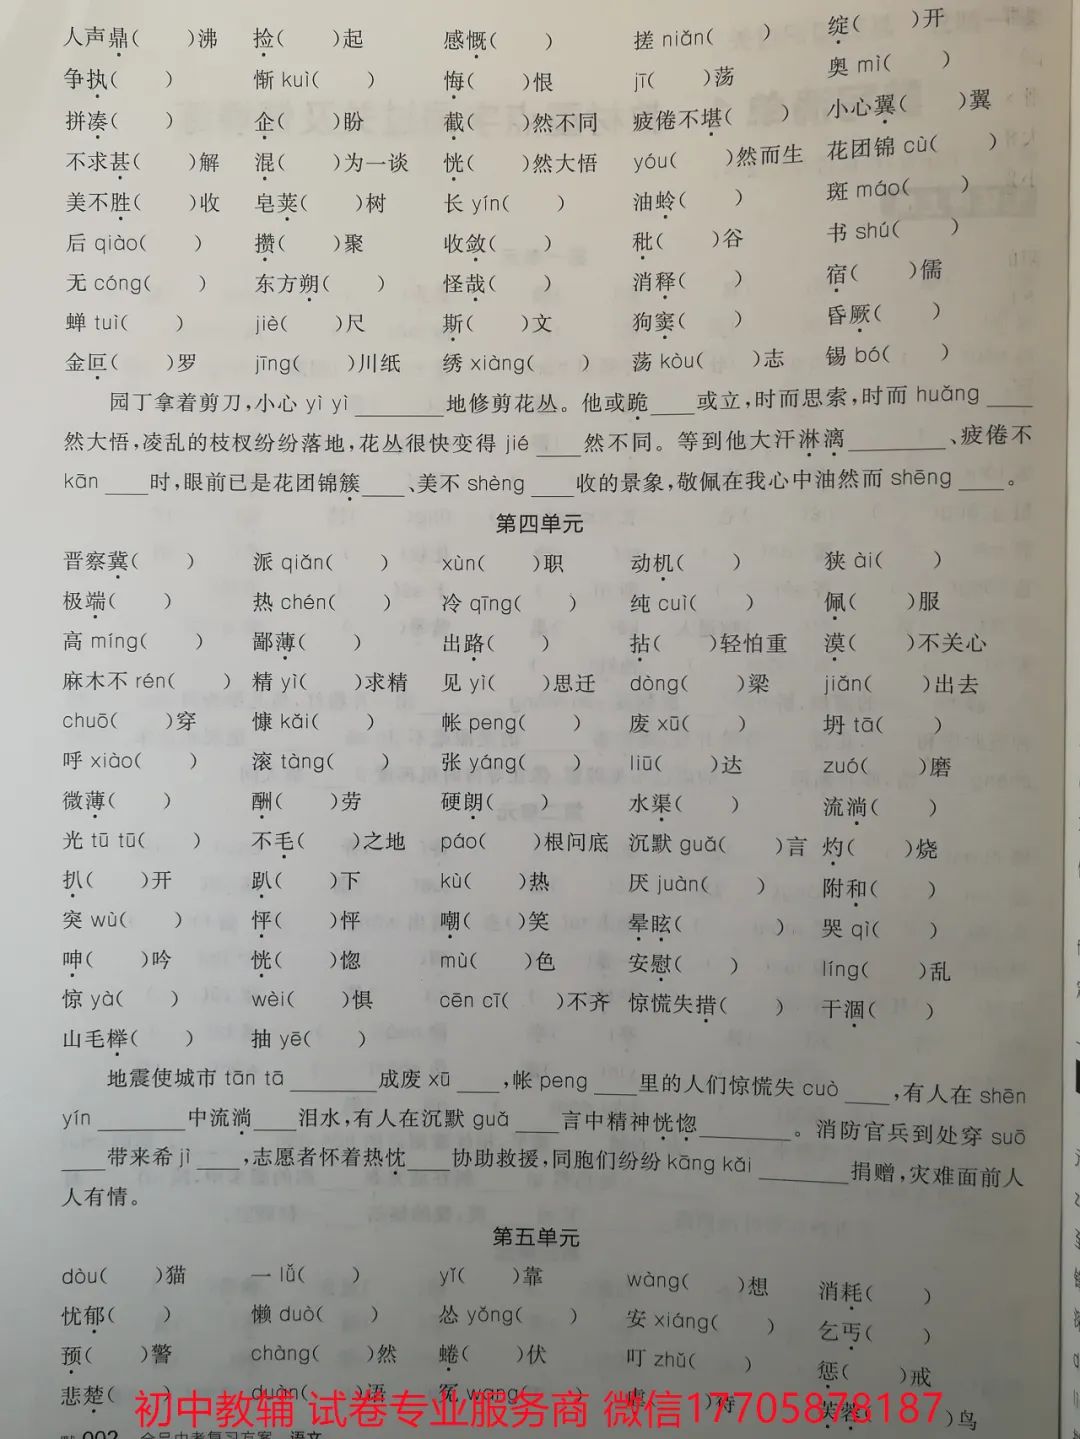 人声鼎(　　)沸　捡(　　)起　感慨(　　)　搓 niǎn(　　)　绽(　　)开
争执(　　)　惭 kuì(　　)　悔(　　)恨　jī(　　)荡　奥 mì(　　)
拼凑(　　)　企(　　)盼　截(　　)然不同　疲倦不堪(　　)　小心翼(　　)翼
不求甚(　　)解　混(　　)为一谈　恍(　　)然大悟　yóu(　　)然而生　花团锦 cù(　　)
美不胜(　　)收　皂荚(　　)树　长 yín(　　)　油蛉(　　)　斑 máo(　　)
后 qiào(　　)　攒(　　)聚　收敛(　　)　秕(　　)谷　书 shú(　　)
无 cóng(　　)　东方朔(　　)　怪哉(　　)　消释(　　)　宿(　　)儒
蝉 tuì(　　)　jiè(　　)尺　斯(　　)文　狗窦(　　)　昏厥(　　)
金叵(　　)罗　jīng(　　)川纸　绣 xiàng(　　)　荡 kòu(　　)志　锡 bó(　　)
园丁拿着剪刀,小心 yì yì ________地修剪花丛。他或跪____或立,时而思索,时而 huǎng ____
然大悟,凌乱的枝杈纷纷落地,花丛很快变得 jié ____然不同。等到他大汗淋漓________、疲倦不
kān ____时,眼前已是花团锦簇____、美不 shèng ____收的景象,敬佩在我心中油然而 shēng ____。
第四单元
晋察冀(　　)　派 qiǎn(　　)　xùn(　　)职　动机(　　)　狭 ài(　　)
极端(　　)　热 chén(　　)　冷 qīng(　　)　纯 cuì(　　)　佩(　　)服
高 míng(　　)　鄙薄(　　)　出路(　　)　拈(　　)轻怕重　漠(　　)不关心
麻木不 rén(　　)　精 yì(　　)求精　见 yì(　　)思迁　dòng(　　)梁　jiǎn(　　)出去
chuō(　　)穿　慷 kǎi(　　)　帐 peng(　　)　废 xū(　　)　坍 tā(　　)
呼 xiào(　　)　滚 tàng(　　)　张 yáng(　　)　liū(　　)达　zuó(　　)磨
微薄(　　)　酬(　　)劳　硬朗(　　)　水渠(　　)　流淌(　　)
光 tū tū(　　)　不毛(　　)之地　páo(　　)根问底　沉默 guǎ(　　)言　灼(　　)烧
扒(　　)开　趴(　　)下　kù(　　)热　厌 juàn(　　)　附和(　　)
突 wù(　　)　怦(　　)怦　嘲(　　)笑　晕眩(　　)　哭 qì(　　)
呻(　　)吟　恍(　　)惚　mù(　　)色　安慰(　　)　líng(　　)乱
惊 yà(　　)　wèi(　　)惧　cēn cī(　　)不齐　惊慌失措(　　)　干涸(　　)
山毛榉(　　)　抽 yē(　　)
地震使城市 tān tā ________成废 xū ____,帐 peng ____里的人们惊慌失 cuò ____,有人在 shēn
yín ________中流淌____泪水,有人在沉默 guǎ ____言中精神恍惚________。消防官兵到处穿 suō
____带来希 jì ____,志愿者怀着热忱____协助救援,同胞们纷纷 kāng kǎi ________捐赠,灾难面前人
人有情。
第五单元
dòu(　　)猫　一 lǚ(　　)　yǐ(　　)靠　wàng(　　)想　消耗(　　)
忧郁(　　)　懒 duò(　　)　怂 yǒng(　　)　安 xiáng(　　)　乞丐(　　)
预(　　)警　chàng(　　)然　蜷(　　)伏　叮 zhǔ(　　)　惩(　　)戒
悲楚(　　)　duàn(　　)语　冤 wang(　　)　虐(　　)待　芙蓉(　　)鸟
初中教辅 试卷专业服务商 微信17705878187
002　全品中考复习方案　语文